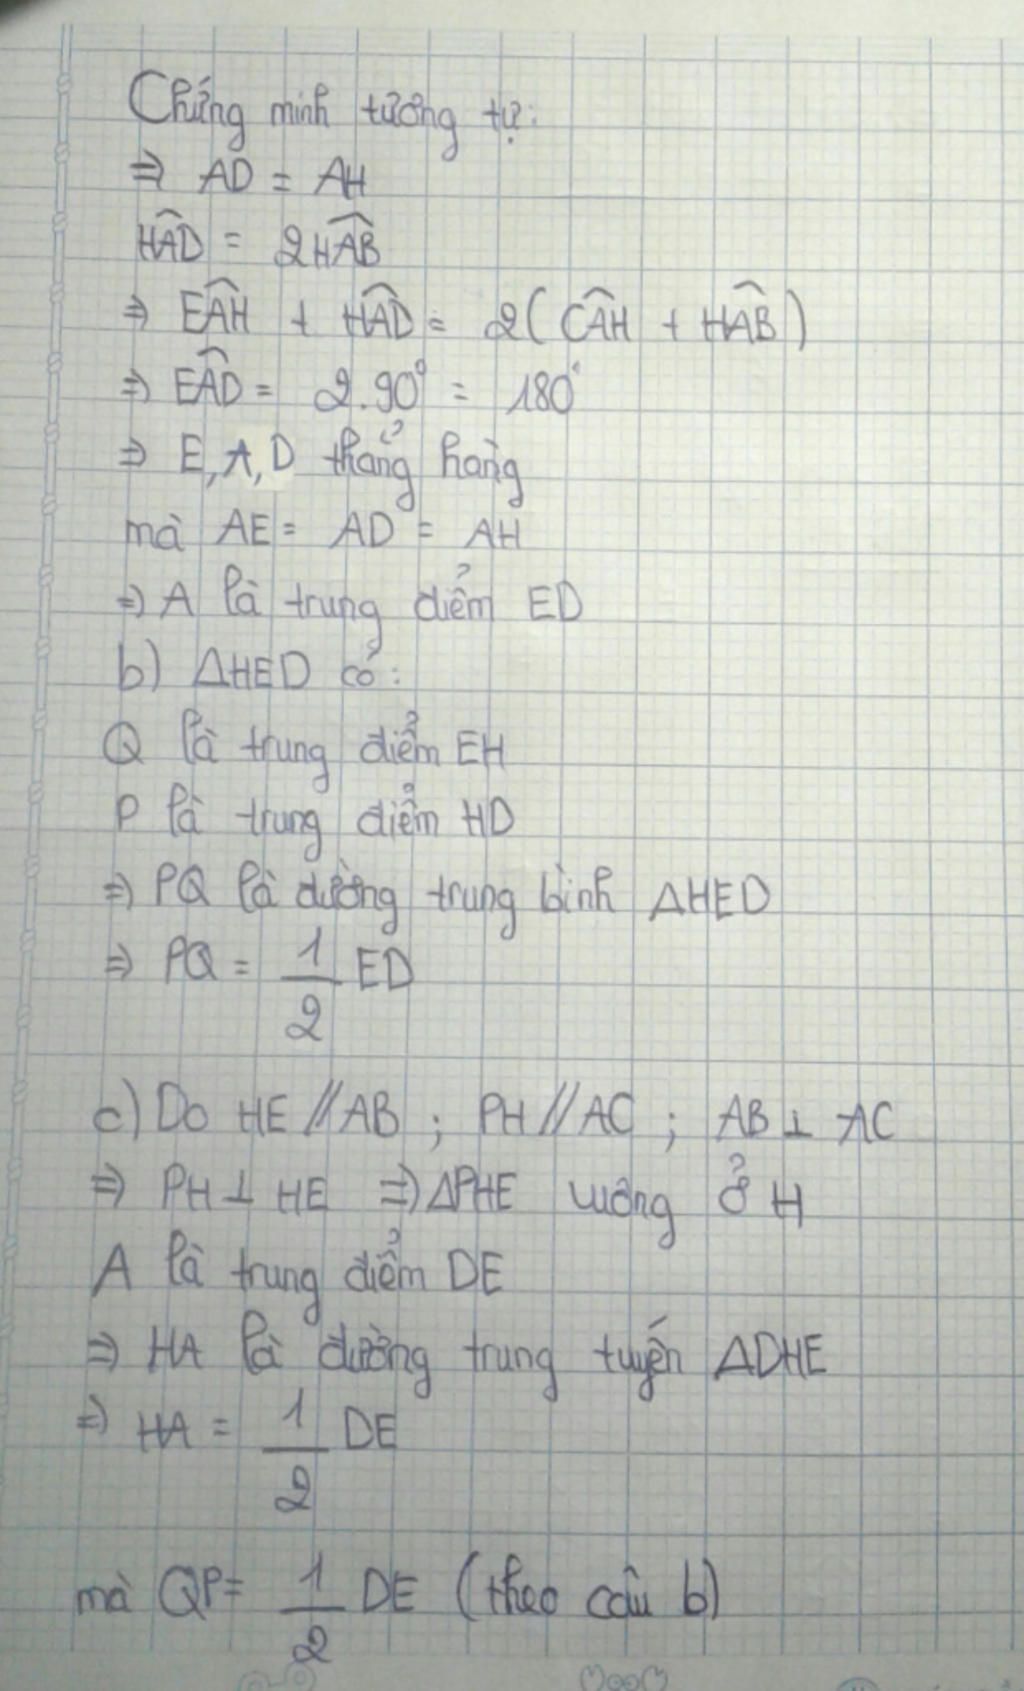 Chứng minh tương tự:
⇒ AD = AH
HAD̂ = 2HAB̂
⇒ EAĤ + HAD̂ = 2(CAĤ + HAB̂)
⇒ EAD̂ = 2.90° = 180°
⇒ E, A, D thẳng hàng
mà AE = AD = AH
⇒ A là trung điểm ED
b) ΔHED có:
Q là trung điểm EH
P là trung điểm HD
⇒ PQ là đường trung bình ΔHED
⇒ PQ = 1/2 ED
c) Do HE // AB ; PH // AC ; AB ⊥ AC
⇒ PH ⊥ HE ⇒ ΔPHE vuông ở H
A là trung điểm DE
⇒ HA là đường trung tuyến ΔDHE
⇒ HA = 1/2 DE
mà QP = 1/2 DE (theo câu b)